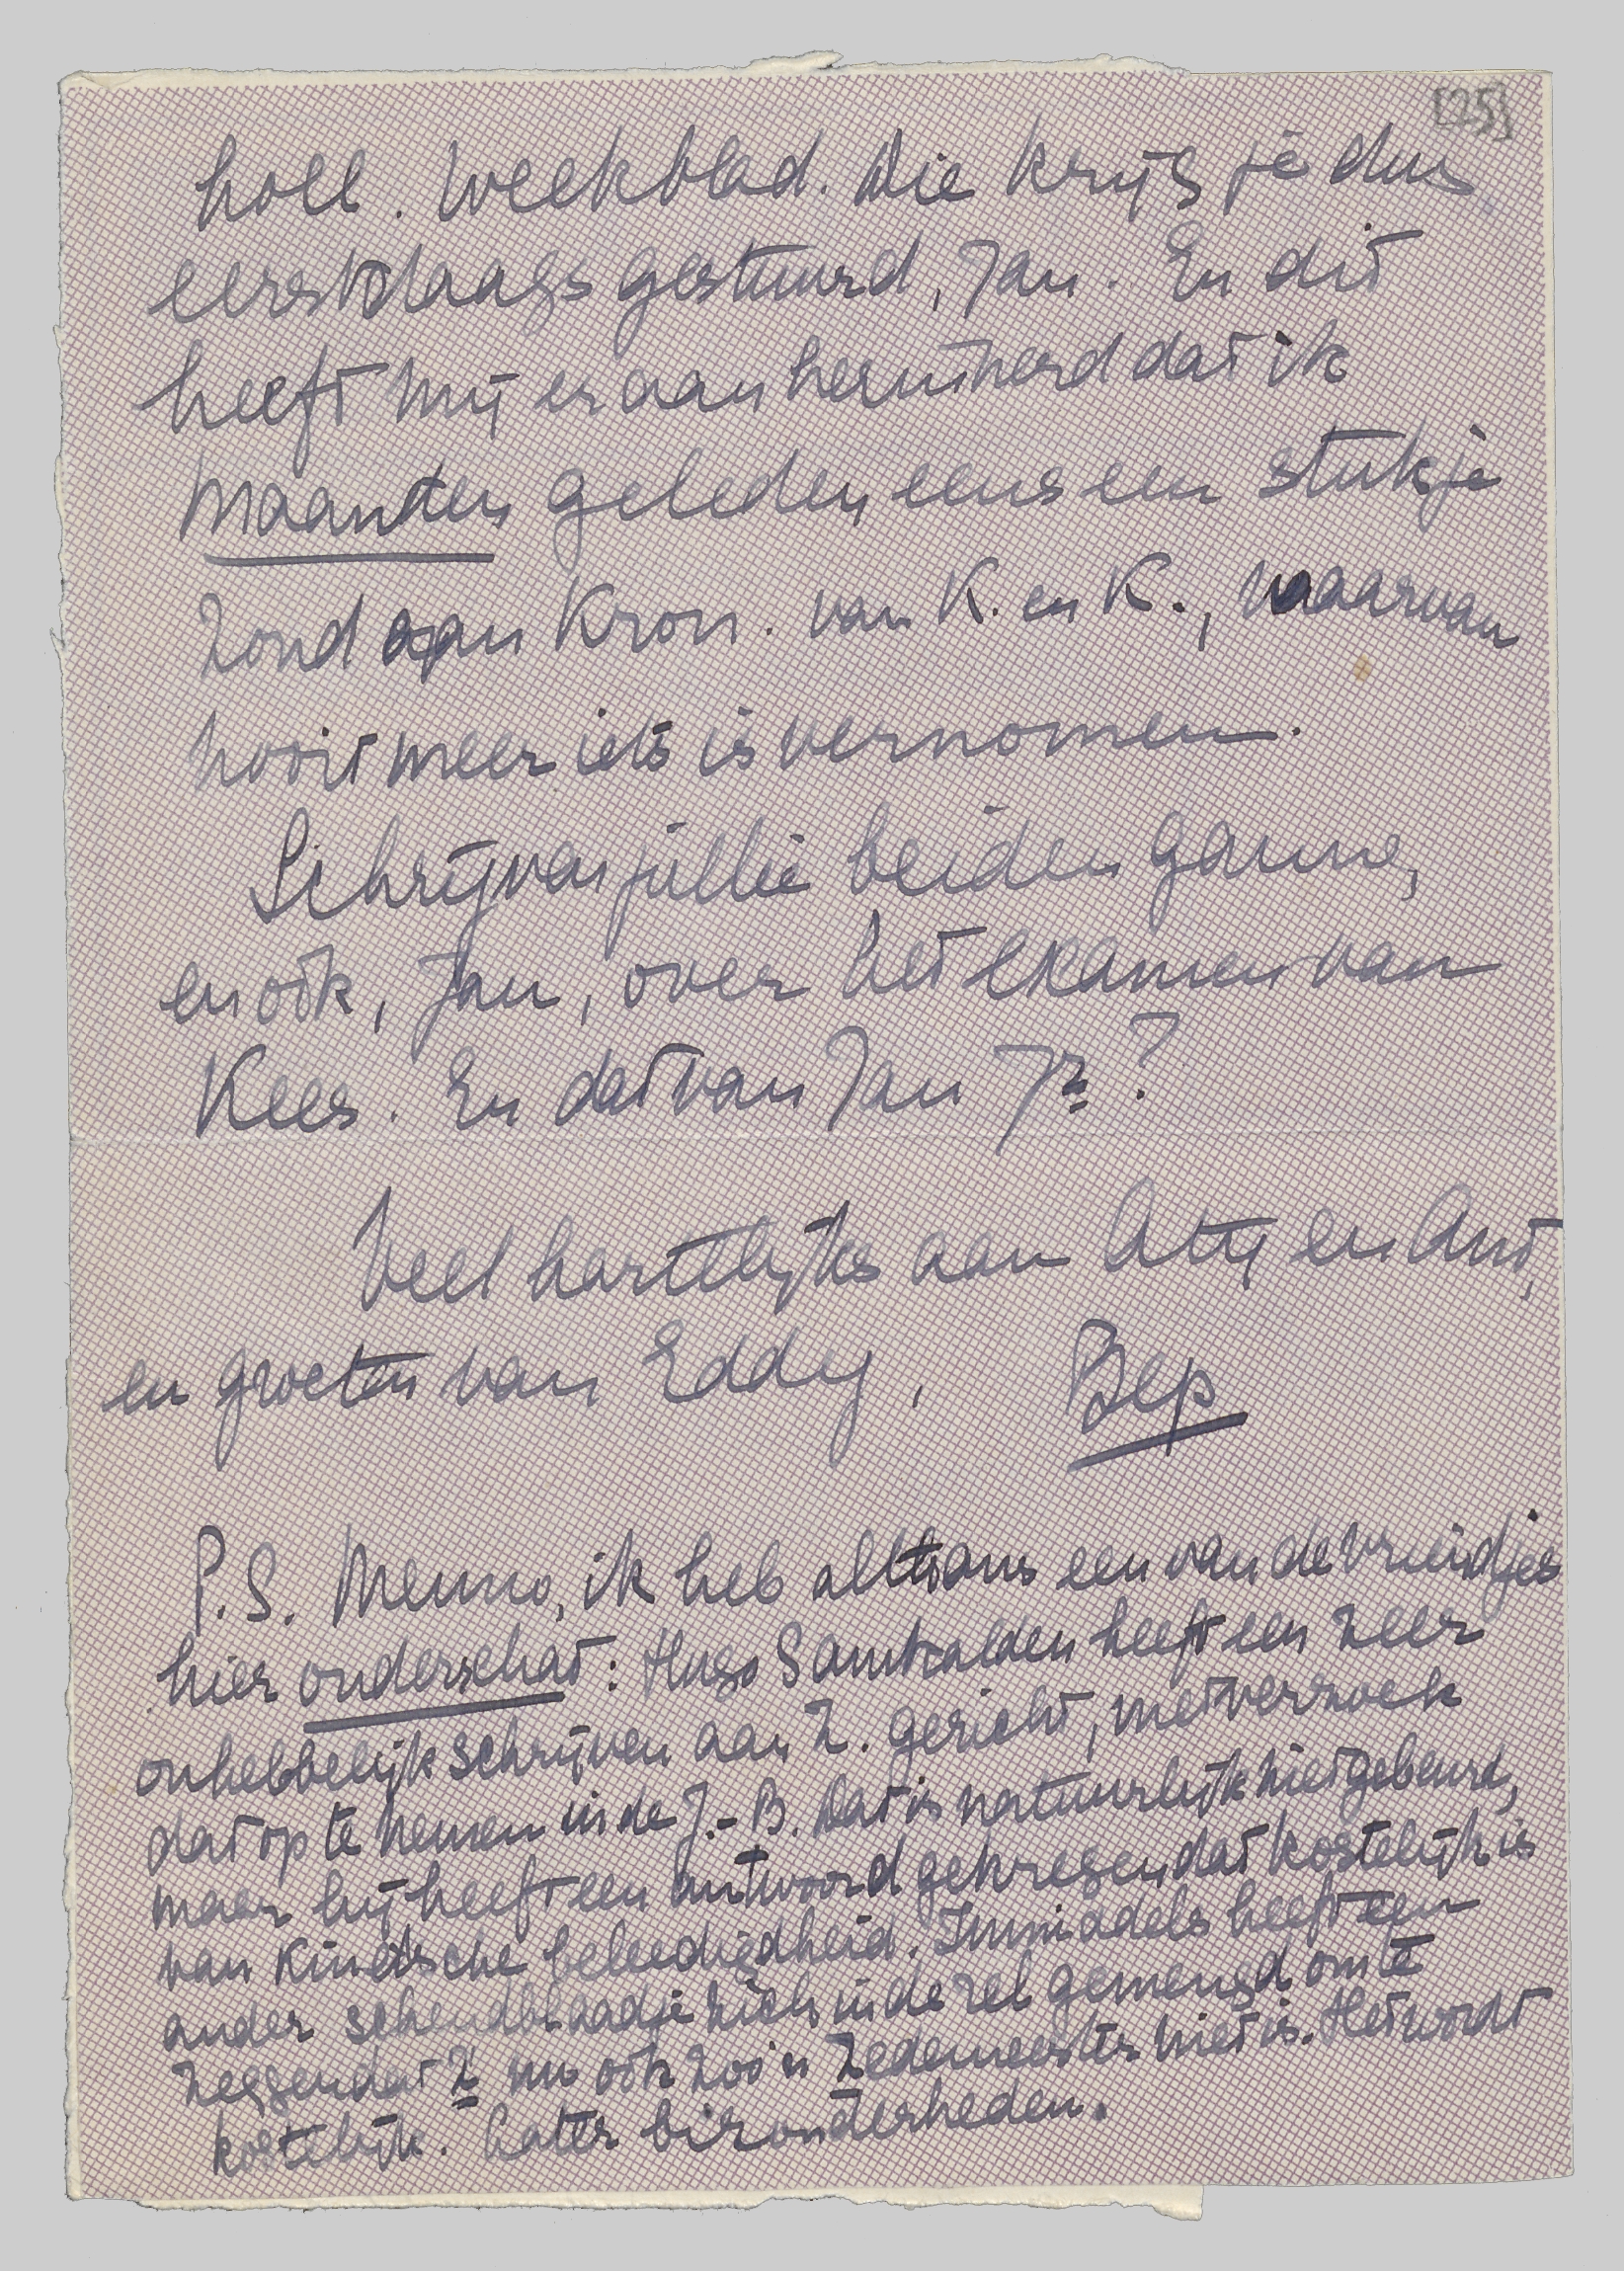 [25]
holl. weekblad. Die krijg je dus
eerstdaags gestuurd, Jan. En dit
heeft mij er aan herinnerd dat ik
maanden geleden eens een stukje
zond aan Kron. van K. en K., waarvan
nooit meer iets is vernomen.
Schrijven jullie beiden gauw,
en ook, Jan, over het examen van
Kees. En dat van Jan Jr?
Veel hartelijks aan Aty en Ant,
en groeten van Eddy, Bep
P.S. Menno, ik heb althans een van de vriendjes
hier onderschat: Hugo Samkalden heeft een zeer
onhebbelijk schrijven aan Z. gericht, met verzoek
dat op te nemen in de J.-B. Dat is natuurlijk niet gebeurd,
maar hij heeft een antwoord gekregen dat kostelijk is
van kindsche beleedigdheid. Inmiddels heeft een
ander schendblaadje zich in de rel gemengd om te
zeggen dat Z nu ook zoo'n Zedemeester niet is. Het wordt
kostelijk. Later bizonderheden.